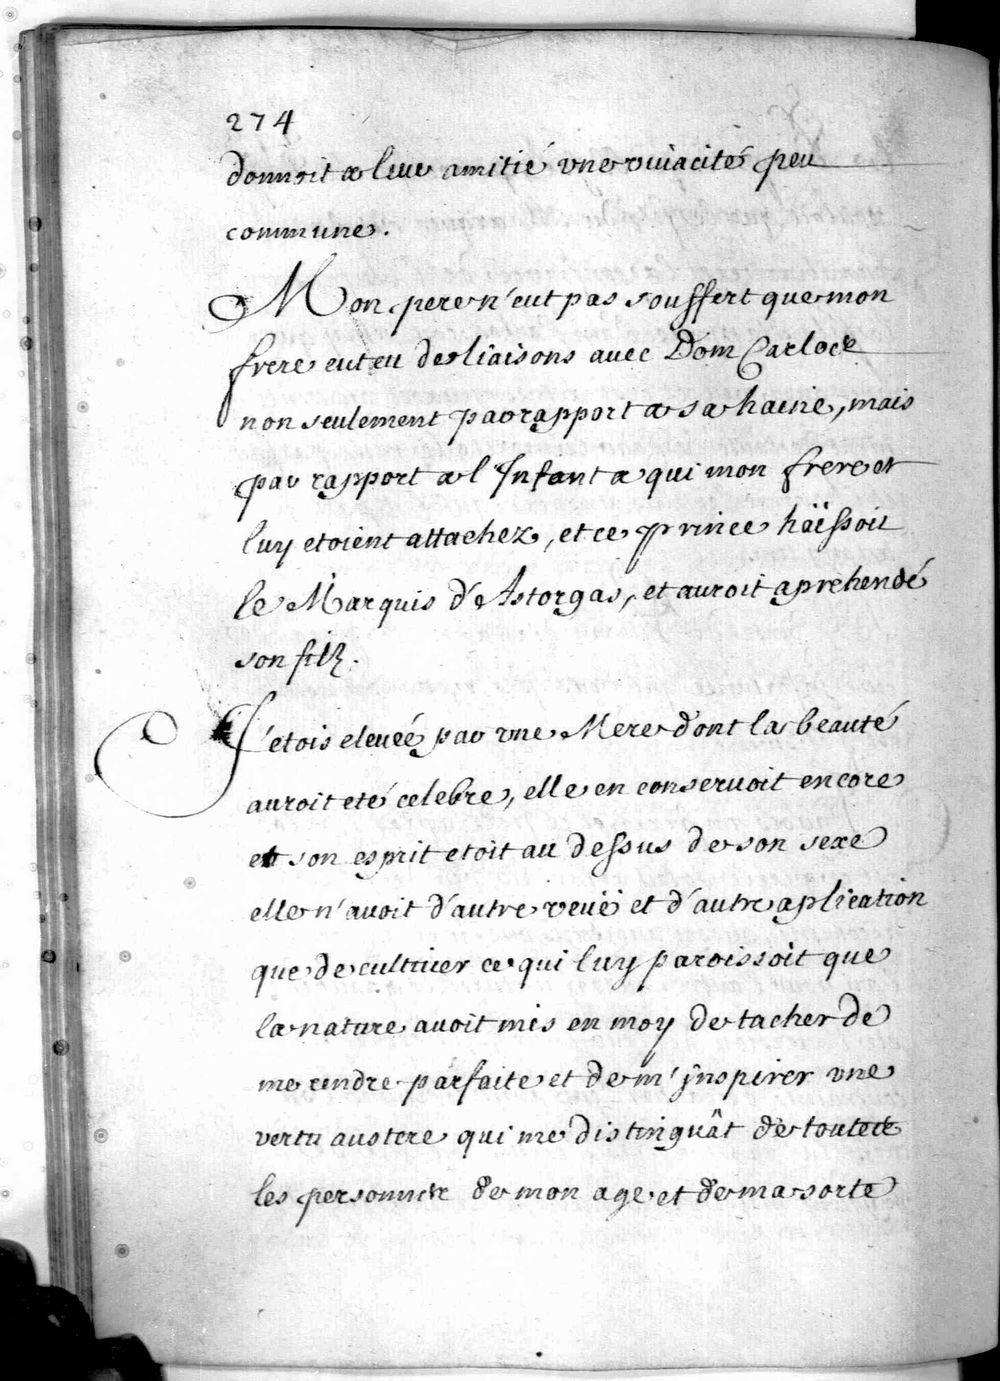 274
donnoit a leur amitié une viuacité peu
commune.
Mon pere n'eut pas souffert que mon
frere eut eu des liaisons auec Dom Carlos
non seulement par rapport a sa haine, mais
par rapport a l'Infant a qui mon frere et
luy etoient attachez, et ce prince haïssoit
le Marquis d'Astorgas, et auroit aprehendé
son filz.
J'etois eleueé par vne Mere dont la beauté
auroit eté celebre, elle en conseruoit encore
et son esprit etoit au dessus de son sexe
elle n'auoit d'autre veuë et d'autre aplication
que de cultiuer ce qui luy paroissoit que
la nature auoit mis en moy de tacher de
me rendre parfaite et de m'jnspirer vne
vertu austere qui me distinguât de toutes
les personnes de mon age et de ma sorte